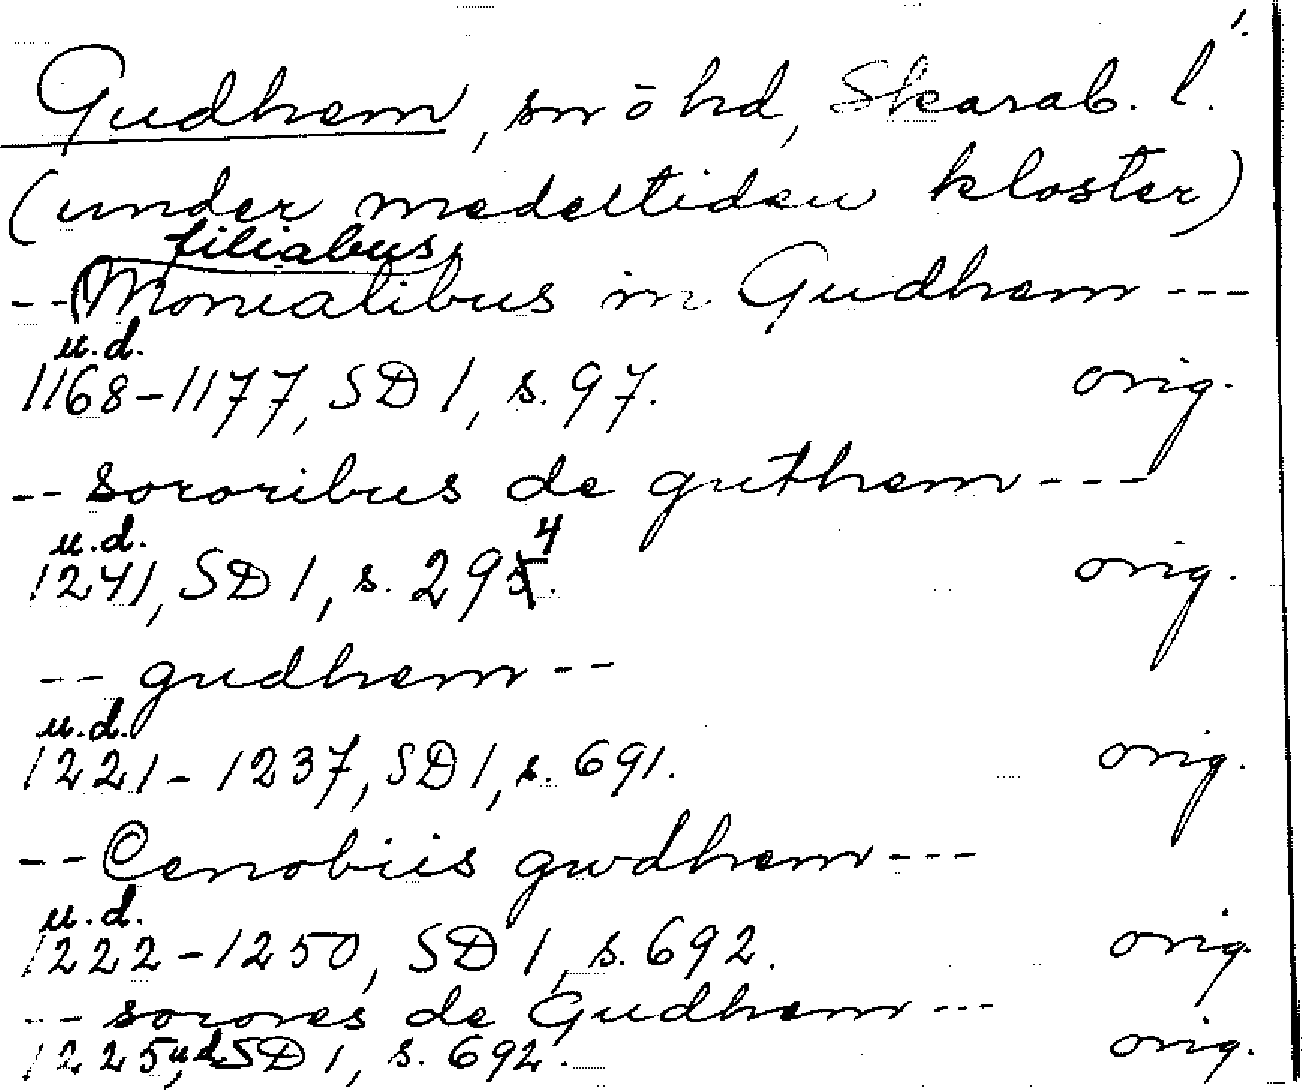 1.
Gudhem, sn ö hd, Skarab. l.
(under medeltiden kloster)
filiabus
-- Monialibus in Gudhem ---
u.d.
1168-1177, SD 1, s. 97. orig.
-- sororibus de guthem ---
u.d. 4
1241, SD 1, s. 295. orig.
-- gudhem --
u.d.
1221-1237, SD 1, s. 691. orig.
-- Cenobiis gwdhem ---
u.d.
1222-1250, SD 1, s. 692. orig.
-- sorores de Gudhem ---
1225, u.d. SD 1, s. 692. orig.